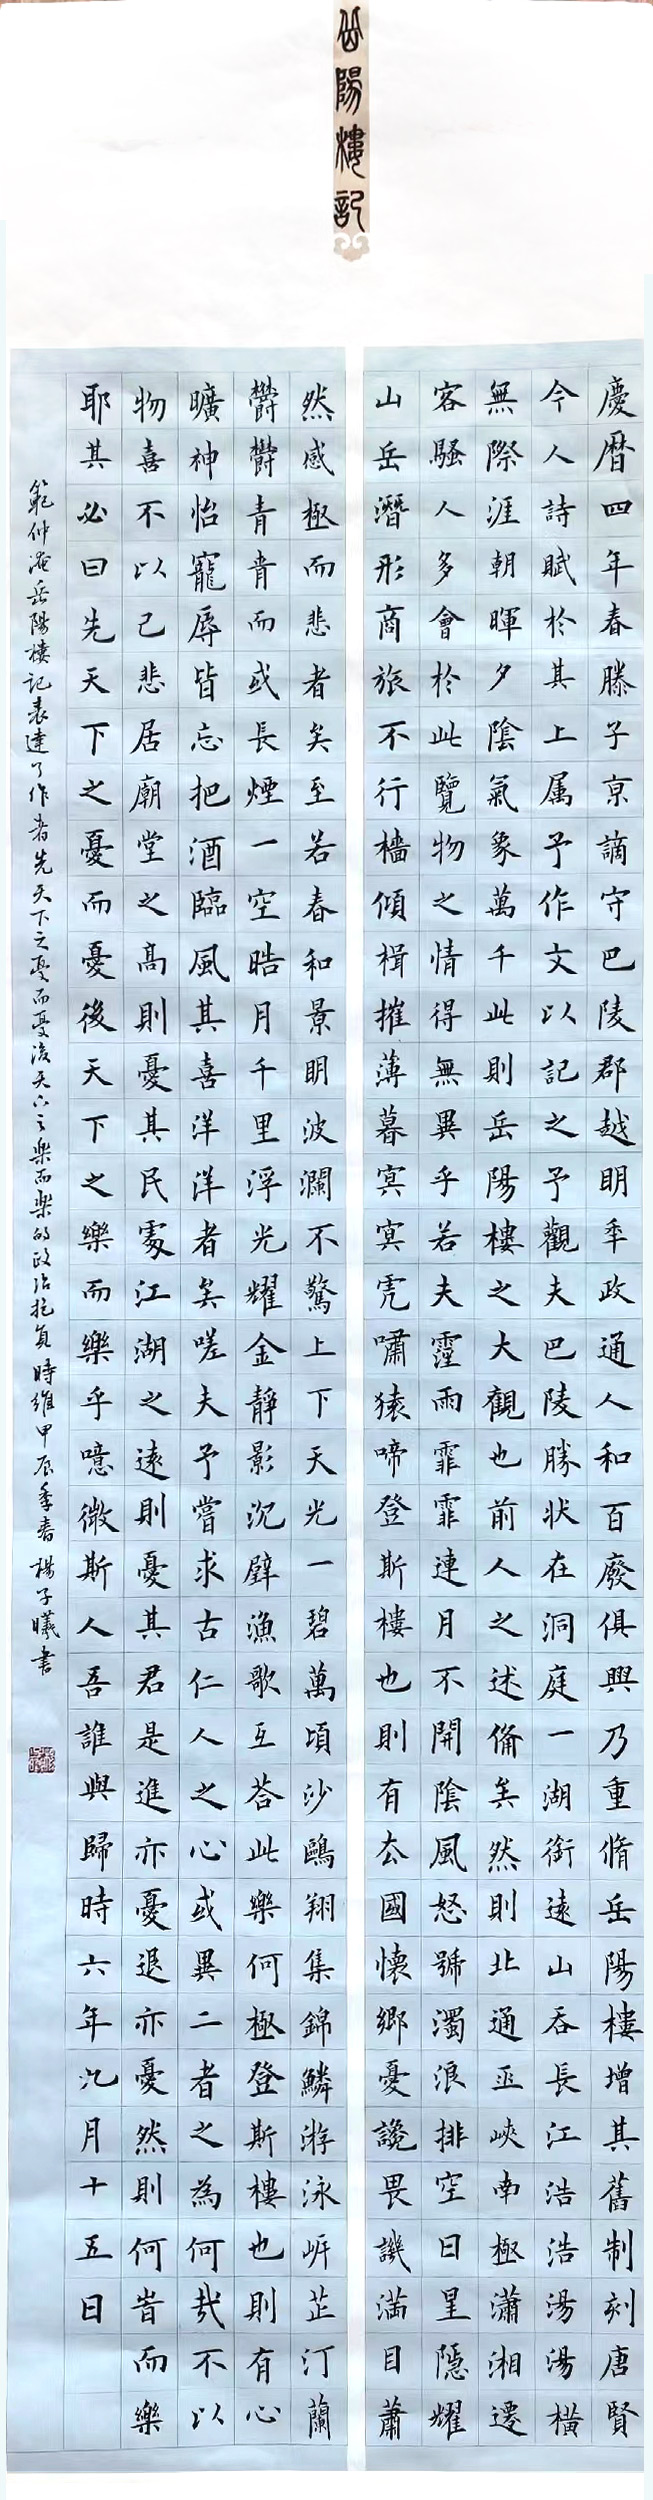 岳陽樓記
慶暦四年春滕子亰謫守巴陵郡越明秊政通人和百廢俱興乃重脩岳陽樓增其舊制刻唐賢
今人詩賦於其上属予作文以記之予觀夫巴陵勝狀在洞庭一湖銜遠山吞長江浩浩湯湯橫
無際涯朝暉夕陰氣象萬千此則岳陽樓之大觀也前人之述俻矣然則北通巫峽南極瀟湘遷
客騷人多會於此覽物之情得無異乎若夫霪雨霏霏連月不開陰風怒號濁浪排空日星隱耀
山岳潛形商旅不行檣傾楫摧薄暮冥冥虎嘯猿啼登斯樓也則有去國懷鄉憂讒畏譏滿目蕭
然感極而悲者矣至若春和景明波瀾不驚上下天光一碧萬頃沙鷗翔集錦鱗游泳岸芷汀蘭
欝欝青青而或長煙一空皓月千里浮光耀金靜影沉璧漁歌互荅此樂何極登斯樓也則有心
曠神怡寵辱皆忘把酒臨風其喜洋洋者矣嗟夫予嘗求古仁人之心或異二者之為何哉不以
物喜不以己悲居廟堂之高則憂其民處江湖之遠則憂其君是進亦憂退亦憂然則何旹而樂
耶其必曰先天下之憂而憂後天下之樂而樂乎噫微斯人吾誰與歸時六年九月十五日
範仲淹岳陽樓記表達了作者先天下之憂而憂後天下之樂而樂的政治抱負時維甲辰季春楊子曦書